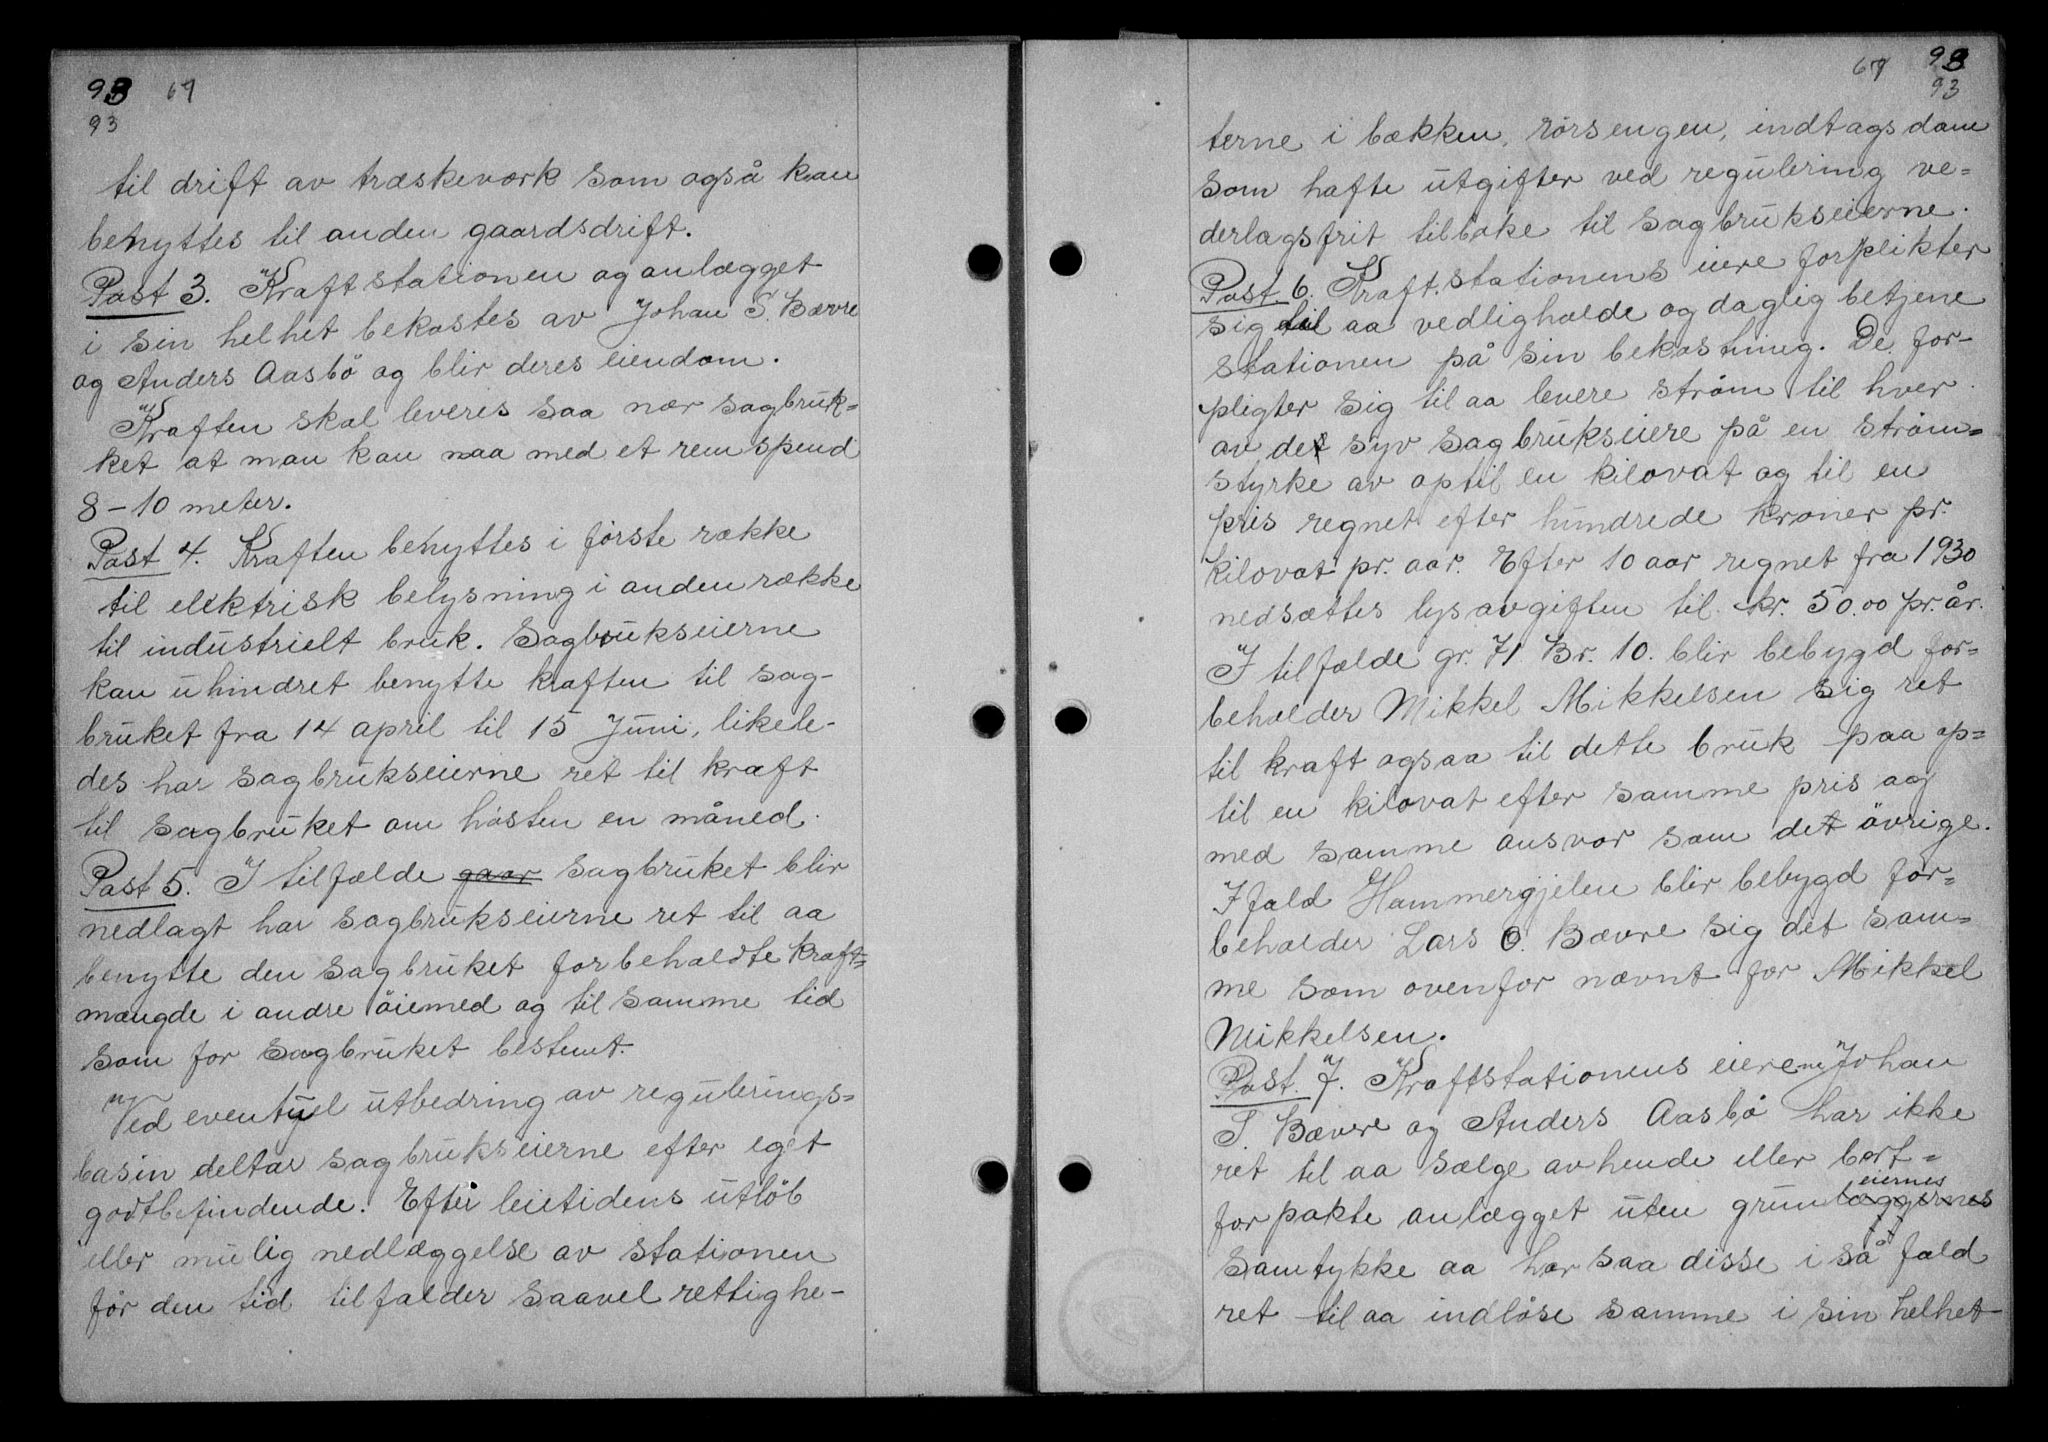 93 67
93
til drift av træskeværk som også kan
benyttes til anden gaardsdrift.
Post 3. Kraftstationen og anlægget
i sin helhet bekostes av Johan S. Bævre
og Anders Aasbö og blir deres eiendom.
Kraften skal leveres saa nær sagbruk=
ket at man kan naa med et rem spend
8-10 meter.
Post 4. Kraften benyttes i förste række
til elektrisk belysning i anden række
til industrielt bruk. Sagbrukseierne
kan uhindret benytte kraften til sag-
bruket fra 14 april til 15 Juni, likele-
des har sagbrukseierne ret til kraft
til sagbruket om hösten en måned.
Post 5. I tilfælde gaar sagbruket blir
nedlagt har sagbrukseierne ret til aa
benytte den sagbruket forbeholdte kraft=
mængde i andre öiemed og til samme tid
som for sagbruket bestemt.
Ved eventuel utbedring av regulerings=
basin deltar sagbrukseierne efter eget
godtbefindende. Efter leietidens utlöb
eller mulig nedlæggelse av stationen
för den tid tilfalder saavel rettighe-
67 93
93
terne i bækken, rörsengen, indtagsdam
som hafte utgifter ved regulering ve=
derlagsfrit tilbake til sagbrukseierne.
Post 6. Kraftstationens eiere forplikter
sig til aa vedligholde og daglig betjene
stationen på sin bekostning. De for-
pligter sig til aa levere ström til hver
av de syv sagbrukseiere på en ström=
styrke av optil en kilovat og til en
pris regnet efter hundrede kroner pr.
kilovat pr. aar. Efter 10 aar regnet fra 1930
nedsættes lysavgiften til kr. 50.00 pr. år.
I tilfælde gr. 71 Br. 10. blir bebygd for=
beholder Mikkel Mikkelsen sig ret
til kraft ogsaa til dette bruk paa op=
til en kilovat efter samme pris og
med samme ansvar som det övrige.
I fald Hammergjelen blir bebygd for=
beholder Lars O. Bævre sig det sam=
me som ovenfor nævnt for Mikkel
Mikkelsen.
Post. 7. Kraftstationens eiere Johan
S. Bævre og Anders Aasbö har ikke
ret til aa sælge avhende eller bort=
eiernes
forpakte anlægget uten grunlæggernes
samtykke aa har saa disse i så fald
ret til aa indlöse samme i sin helhet